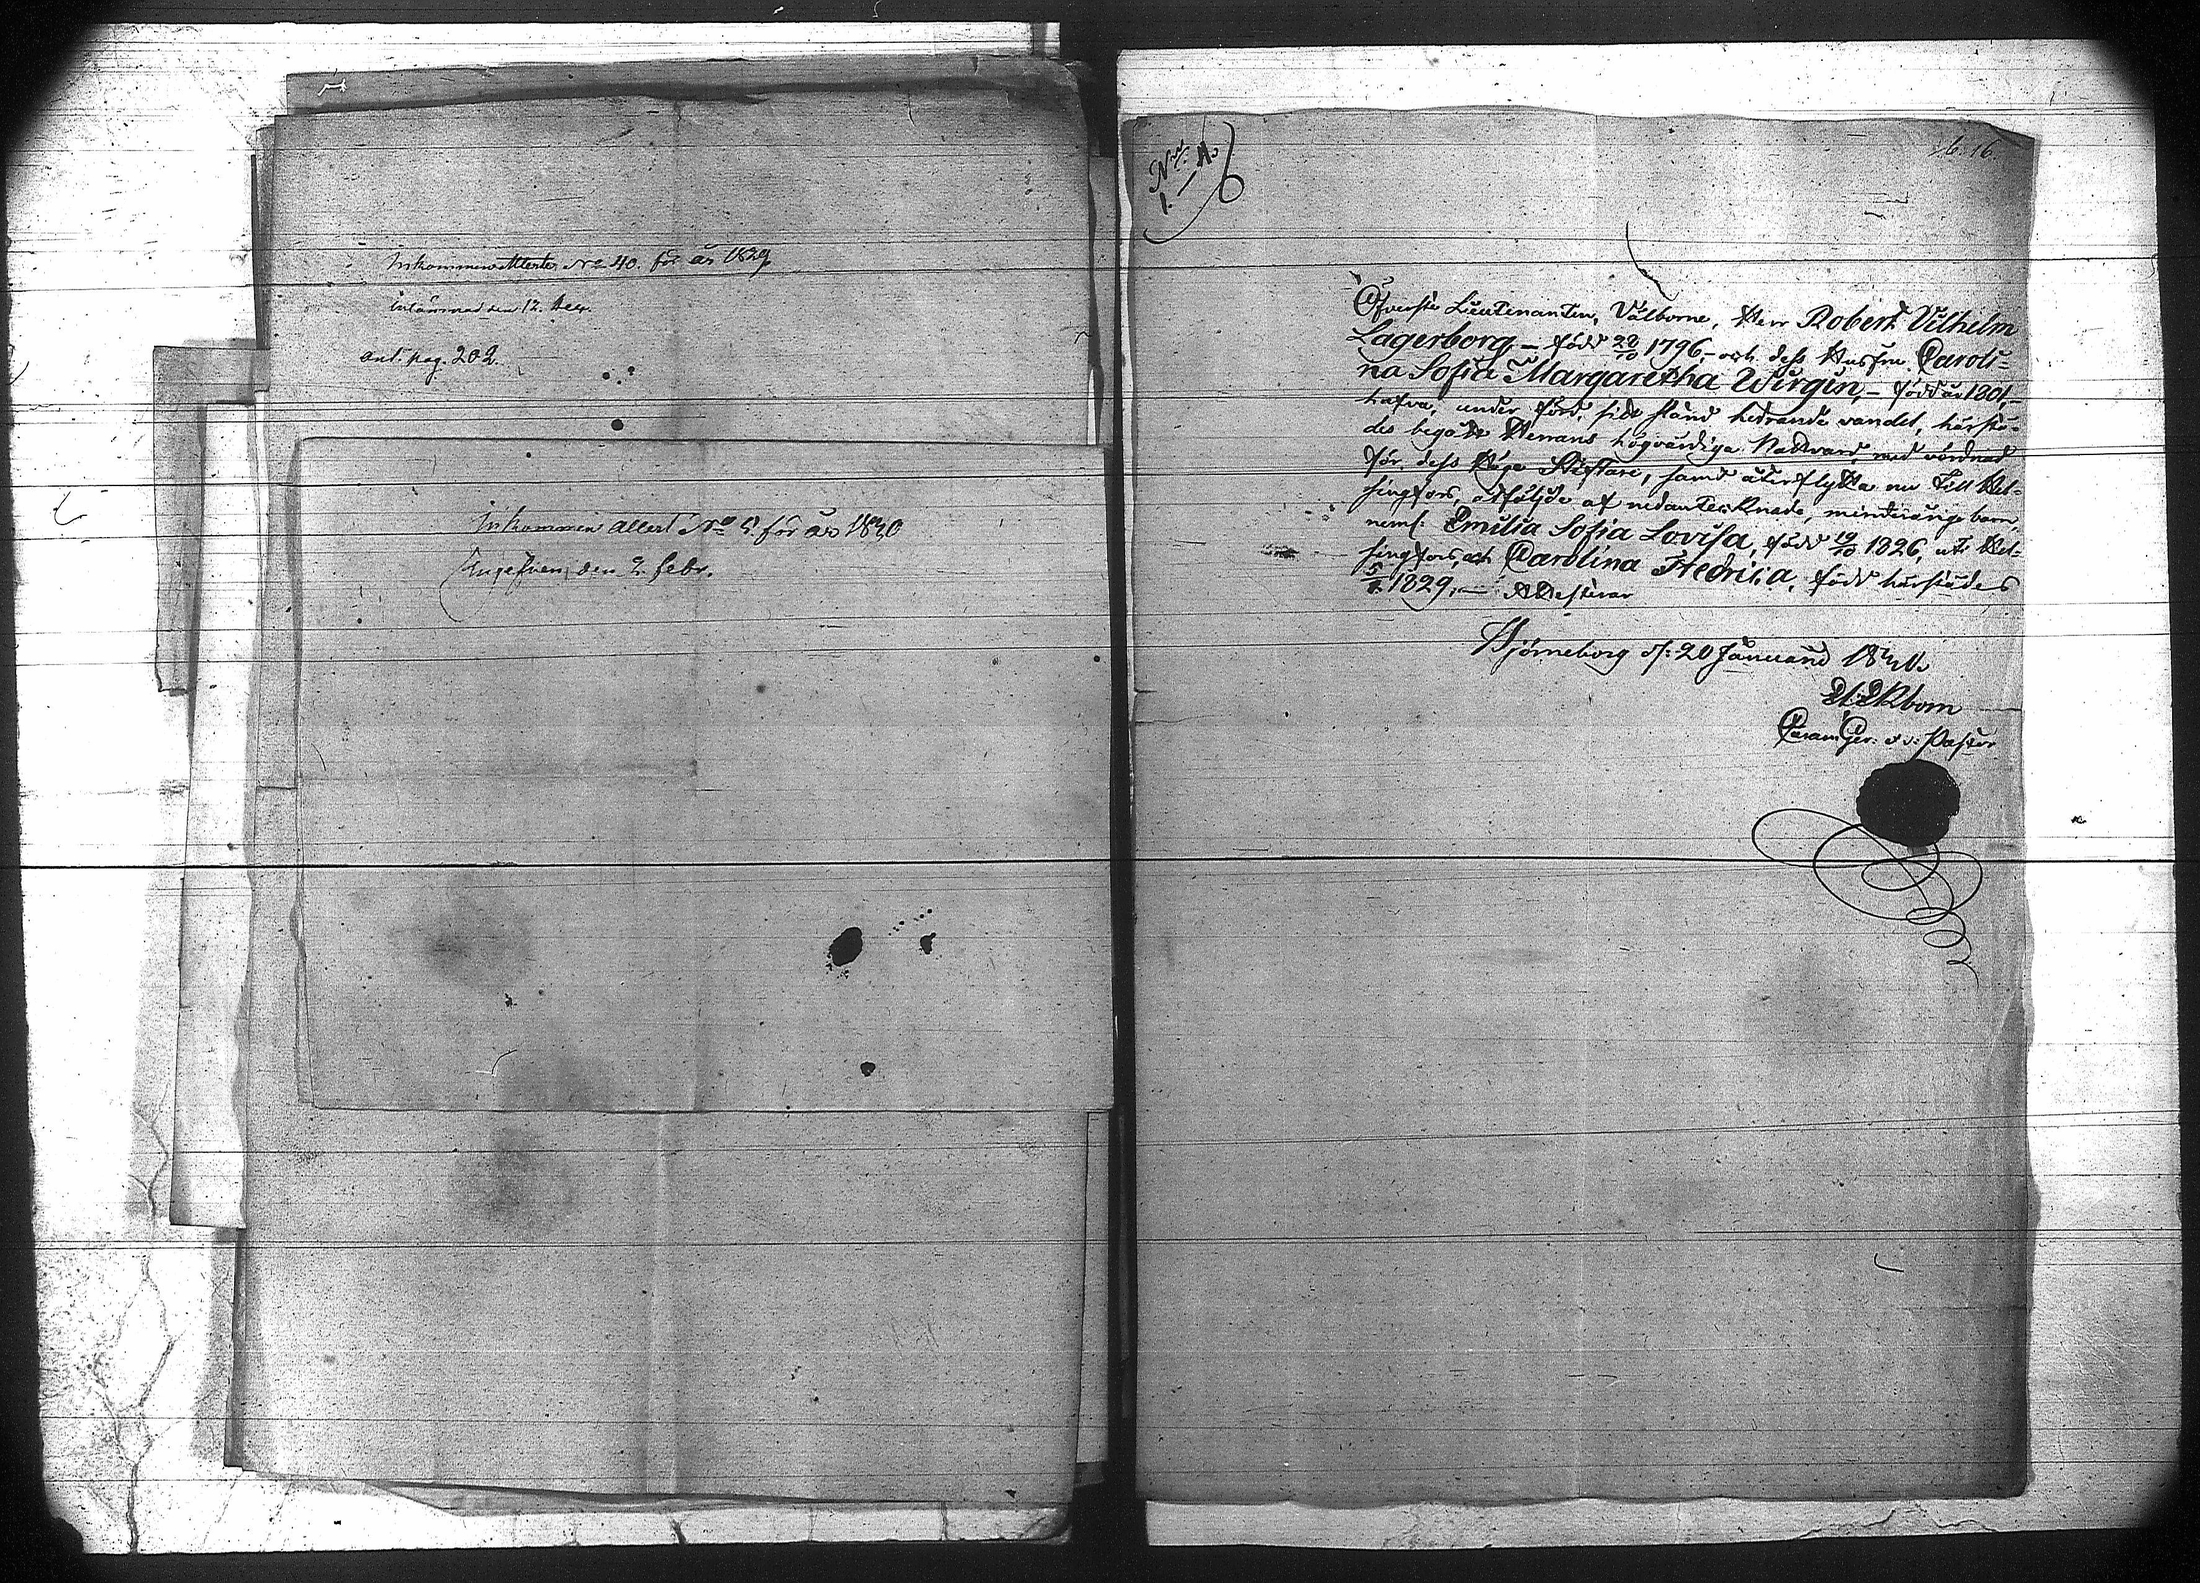 Inkommen Attest No 40. för år 1829
inlämnad den 12. Dec.
ant. pag. 202.
Inkommen attest No 5. för år 1830
Ingifven den 2 febr.
No
1.
16.
Öfverste Lieutenanten, Välborne, Herr Robert Vilhelm
Lagerborg – född 22/10 1796, – och dess Husfru Caroli-
na Sofia Margaretha Wirgin, – född år 1801, –
hafva, under förd, sitt stånd hedrande vandel, härstä-
des begått Herrans högvärdiga Nattvard, med vördnad
för dess Höge Stiftare, samt återflytta nu till Hel-
singfors, åtföljde af nedantecknade, minderåriga barn,
neml: Emilia Sofia Lovisa, född 19/10 1826, uti Hel-
singfors, och Carolina Fredrica, född härstädes
5/ 1829, – Attesterar
Björneborg d: 20 Januarii 1830.
Ekbom
v: Pastor